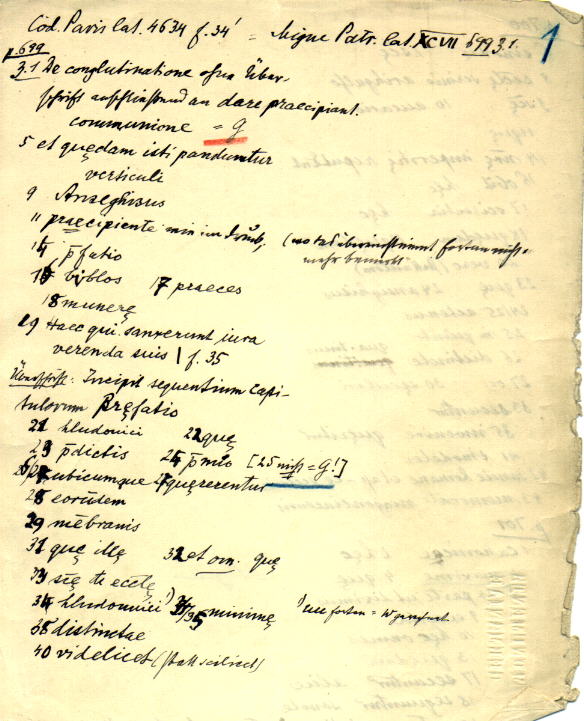 Cod. Paris lat. 4634 f. 34' = Migne Patr. lat. XCVII p 699 3.1.
1
p. 699
3.1 De conglutinatione ohne Über-
schrift anschließend an dare praecipiant.
communione = G
5 et quędam isti panduntur
versiculi
9 Anseghisus
11 praecipiente wie im Druck, (wo das übereinstimmt fortan nicht
mehr bemerkt
14 p̄fatio
15 byblos 17 praeces
18 munerę
19 Haec qui sanxerunt iura
verenda suis | f. 35
Überschrift: Incipit sequentium capi-
tulorum Pręfatio
21 hludouici 22 quę
23 p̄dictis 24 p̄mio [25 niss = G!]
ubicumque quęrerentur
28 eorūdem
29 mēbranis
31 quę illę 32 et om. quę
33 scę di ecclę
34 hludouuici ¹) 34/35 minimę ¹) uu fortan = W
38 distinctae
40 videlicet (statt scilicet)